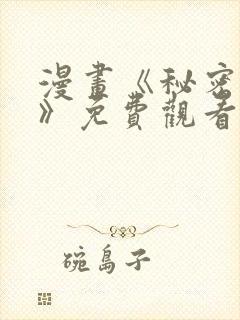 漫畫《秘密
》免費觀看
碗島子